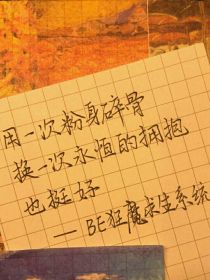 用一次粉身碎骨
换一次永恒的拥抱
也挺好
——BE狂魔求生系统